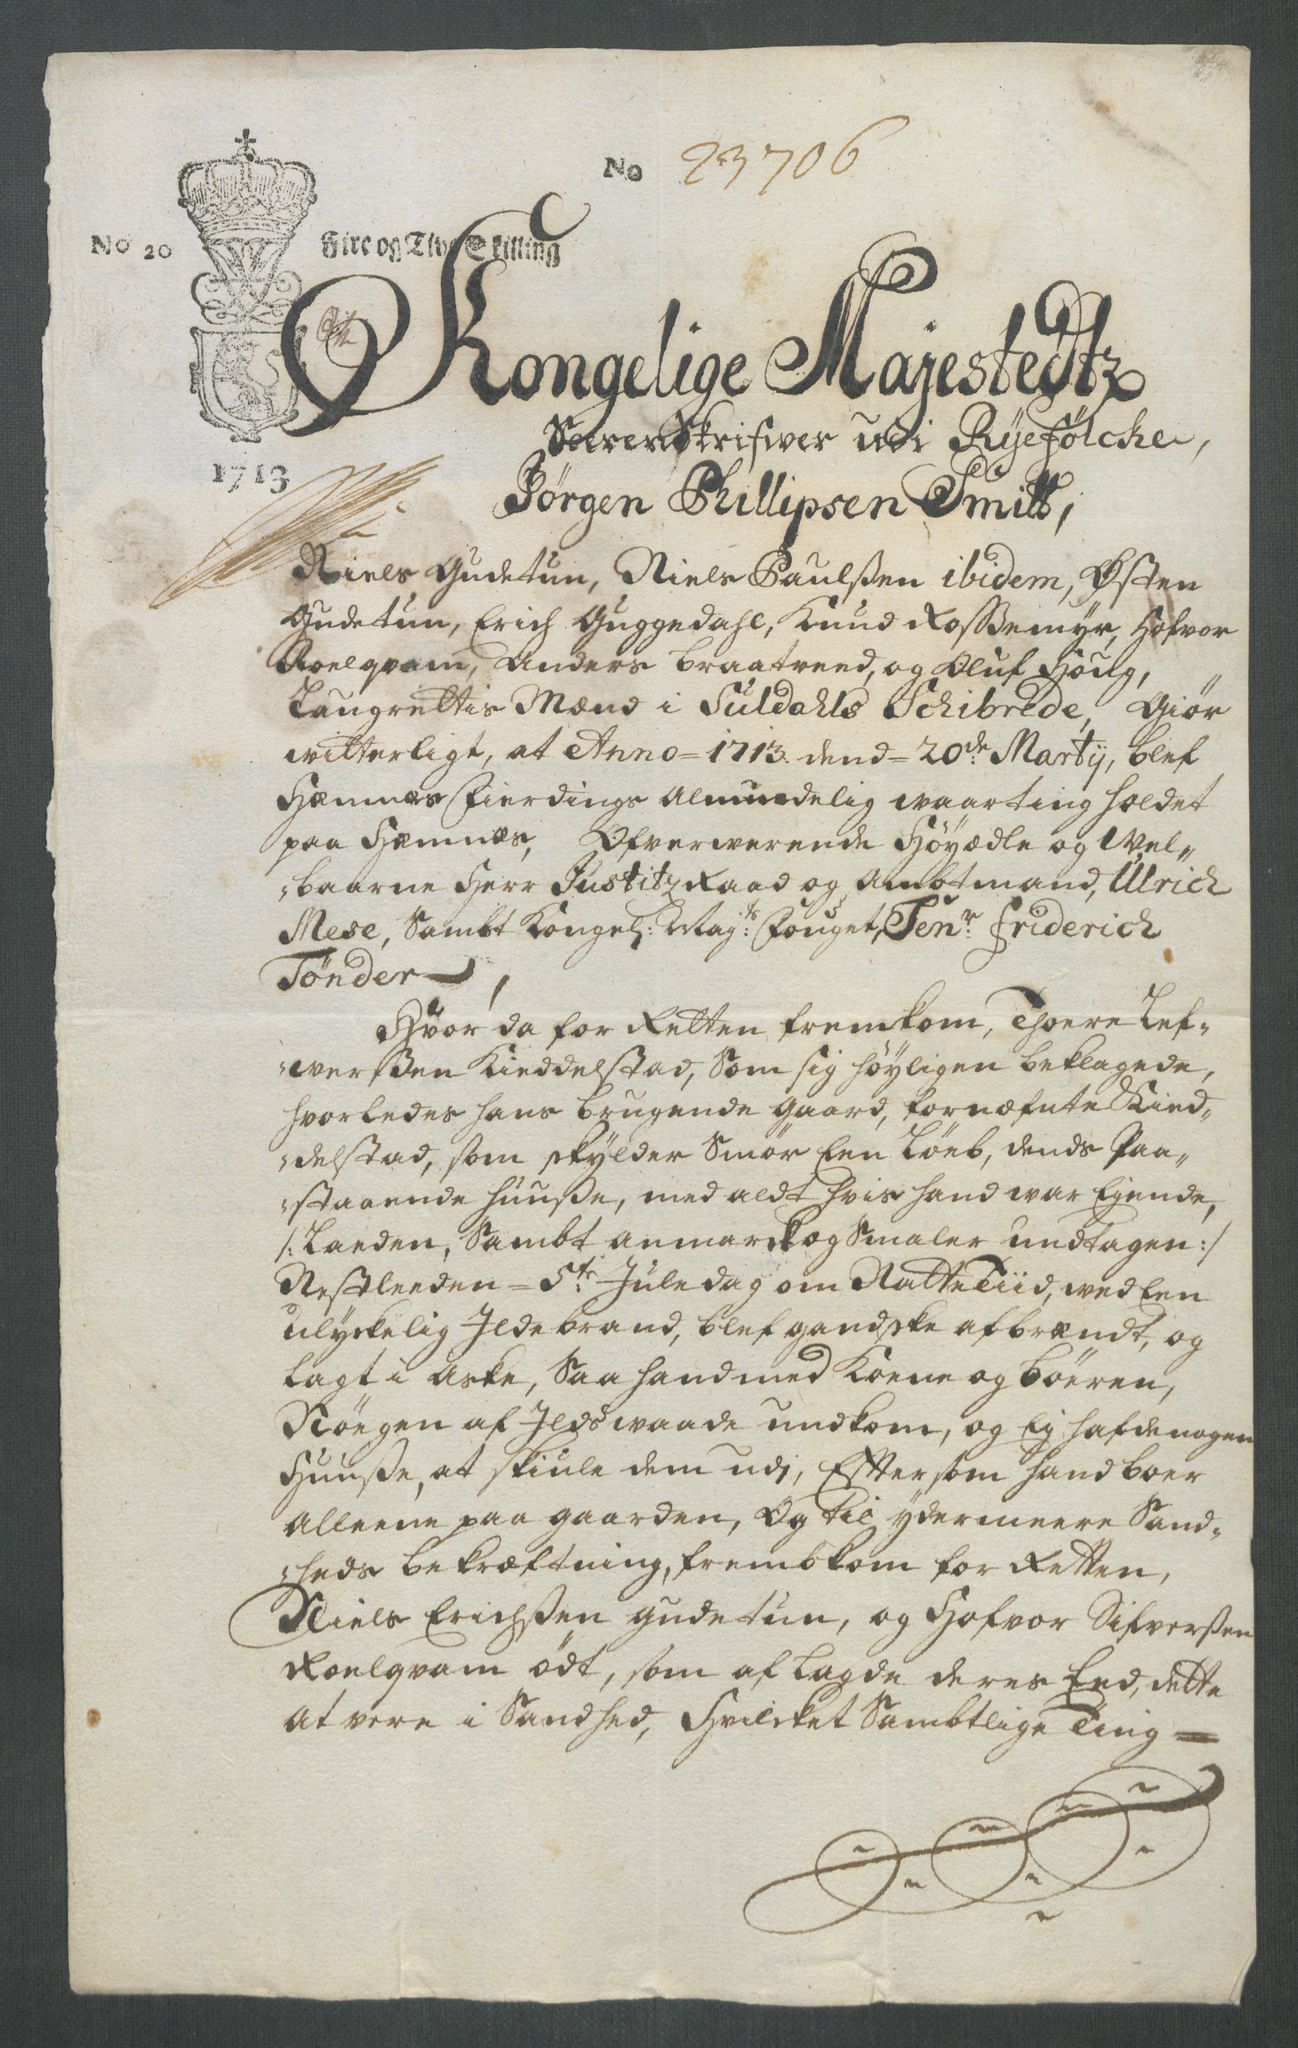 No 23706
No 20 Fire og Tive Skilling
1713
Kongelige Majestedtz
Sorenskrifwer udi Ryefølcke,
Jörgen Phillipsen Smitt,
Niels Gudetun, Niels Paulßen ibidem, Østen
Gudetun, Erich Guggedahl, Knud Roßemyr, Hofvor
Roelqvam, Anders Braatveed, og Oluf Houg,
Laugrettis Mænd i Suldahls Schibrede, Giör
witterligt, at Anno = 1713. dend = 20de Marty, blef
Hæmnes Fierdings Almindelig waarting holdet
paa Hæmnes, Ofverwerende Höyædle og Wel-
baarne Herr Justitz Raad og Ambtmand, Ulrich
Mese, Sambt Kongel: May:ts Fouget, Senr Friderich
Tönder,
Hvor da for Retten fremkom, Thoere Lef-
werßen Kieddelstad, Som sig höyligen beklagede,
hvorledes hans brugende gaard, fornæfnte Kied-
delstad, som skylder Smör Een Löeb, dends Paa-
staaende huuße, med aldt hvis hand war Eyende,
/: Laeden, Sambt anmarsk og Smaler undtagen :/
Nestleeden = 5te Juledag om Natte Tiid, wed Een
ulyckelig Ildebrand, blef gandske afbrændt, og
lagt i Aske, Saa hand med Koene og böeren,
Nöegen af Ilds waade undkom, og Ey hafde nogen
Huuße, at skiule dem udj, Efftersom hand boer
alleene paa gaarden, Og til ydermeere Sand-
heds bekræftning, frembkom for Retten,
Niels Erichßen gudetun, og Hofvor Sifverßen
Roelqvam ödt, som aflagde deres Eed, dette
at vere i Sandhed, Hvilcket Sambtlige Ting